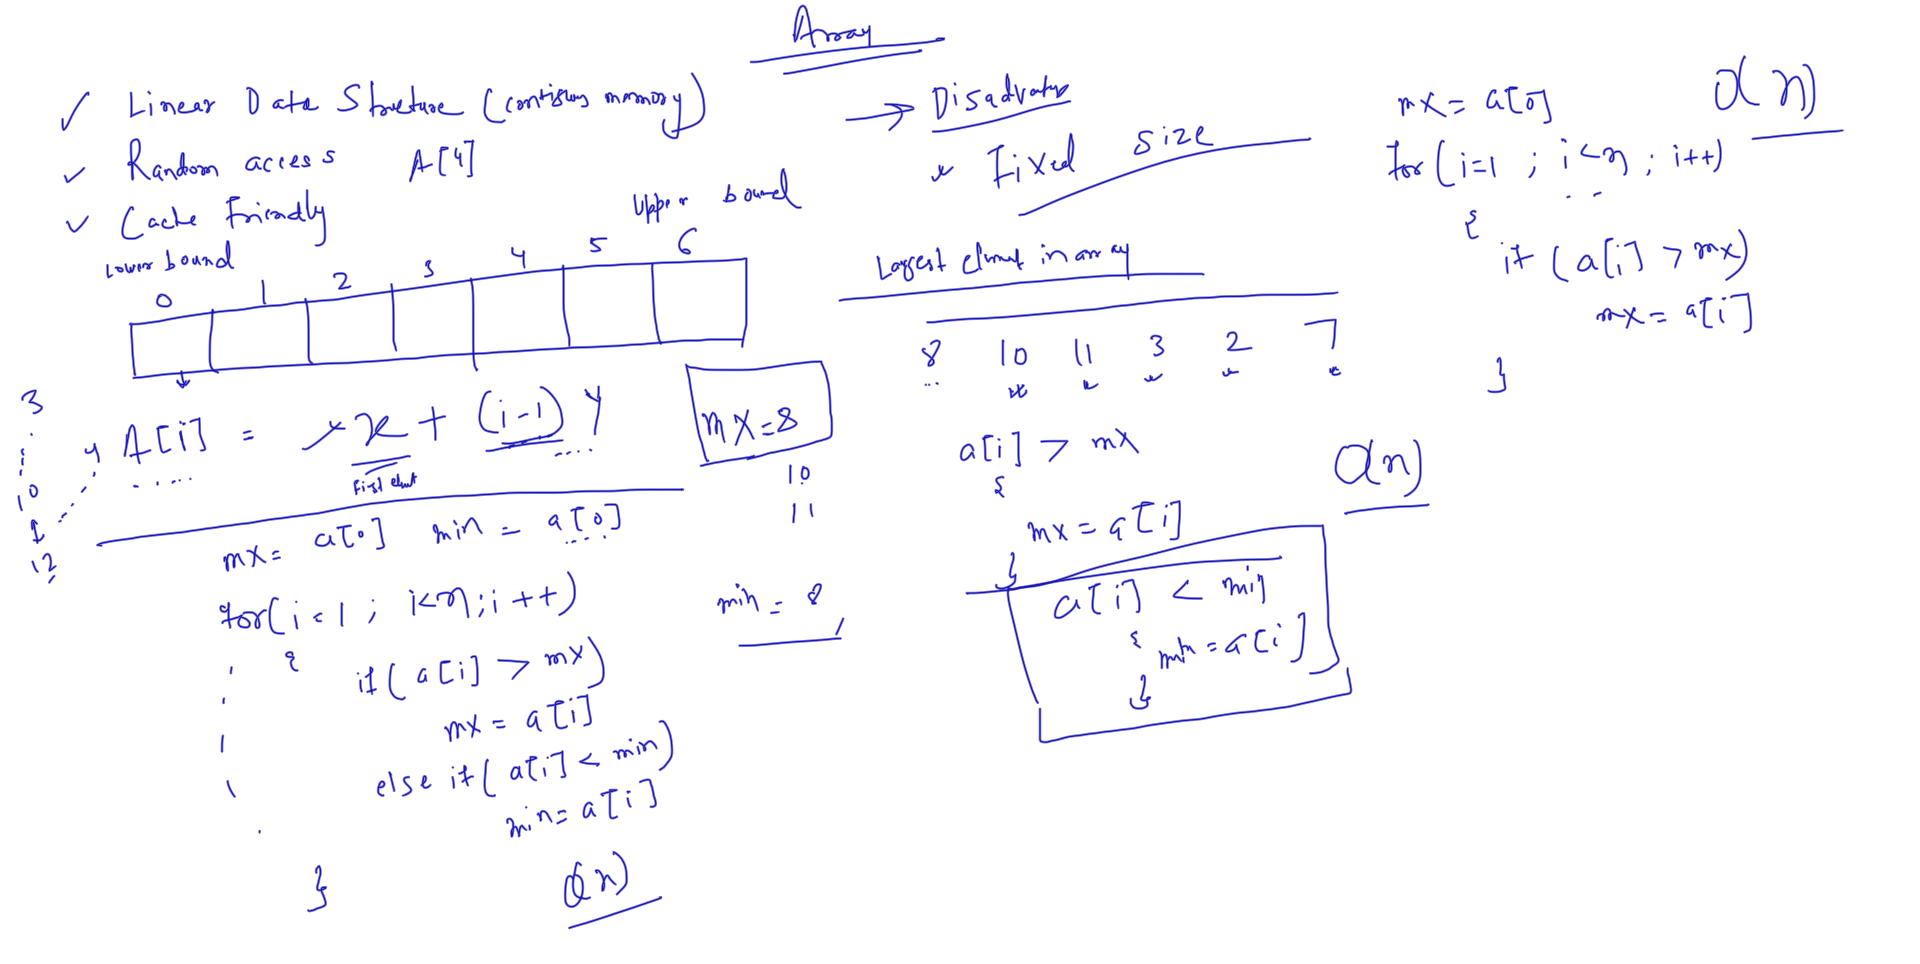 Array
Linear Data Structure (contiguous memory)
Random access A[4]
Cache Friendly
Lower bound
Upper bound
0 1 2 3 4 5 6
A[i] = x + (i-1) y
First elmt
3
10
1
12
y
mx = a[0] min = a[0]
for(i=1 ; i<n ; i++)
{
if( a[i] > mx)
mx = a[i]
else if( a[i] < min)
min = a[i]
}
O(n)
mx=8
10
11
min = 8
→ Disadvatus
Fixed size
Largest elmnt in array
8 10 11 3 2 7
a[i] > mx
{
mx = a[i]
}
a[i] < min
{
min = a[i]
}
O(n)
mx = a[0]
O(n)
for (i=1 ; i<n ; i++)
{
if (a[i] > mx)
mx = a[i]
}